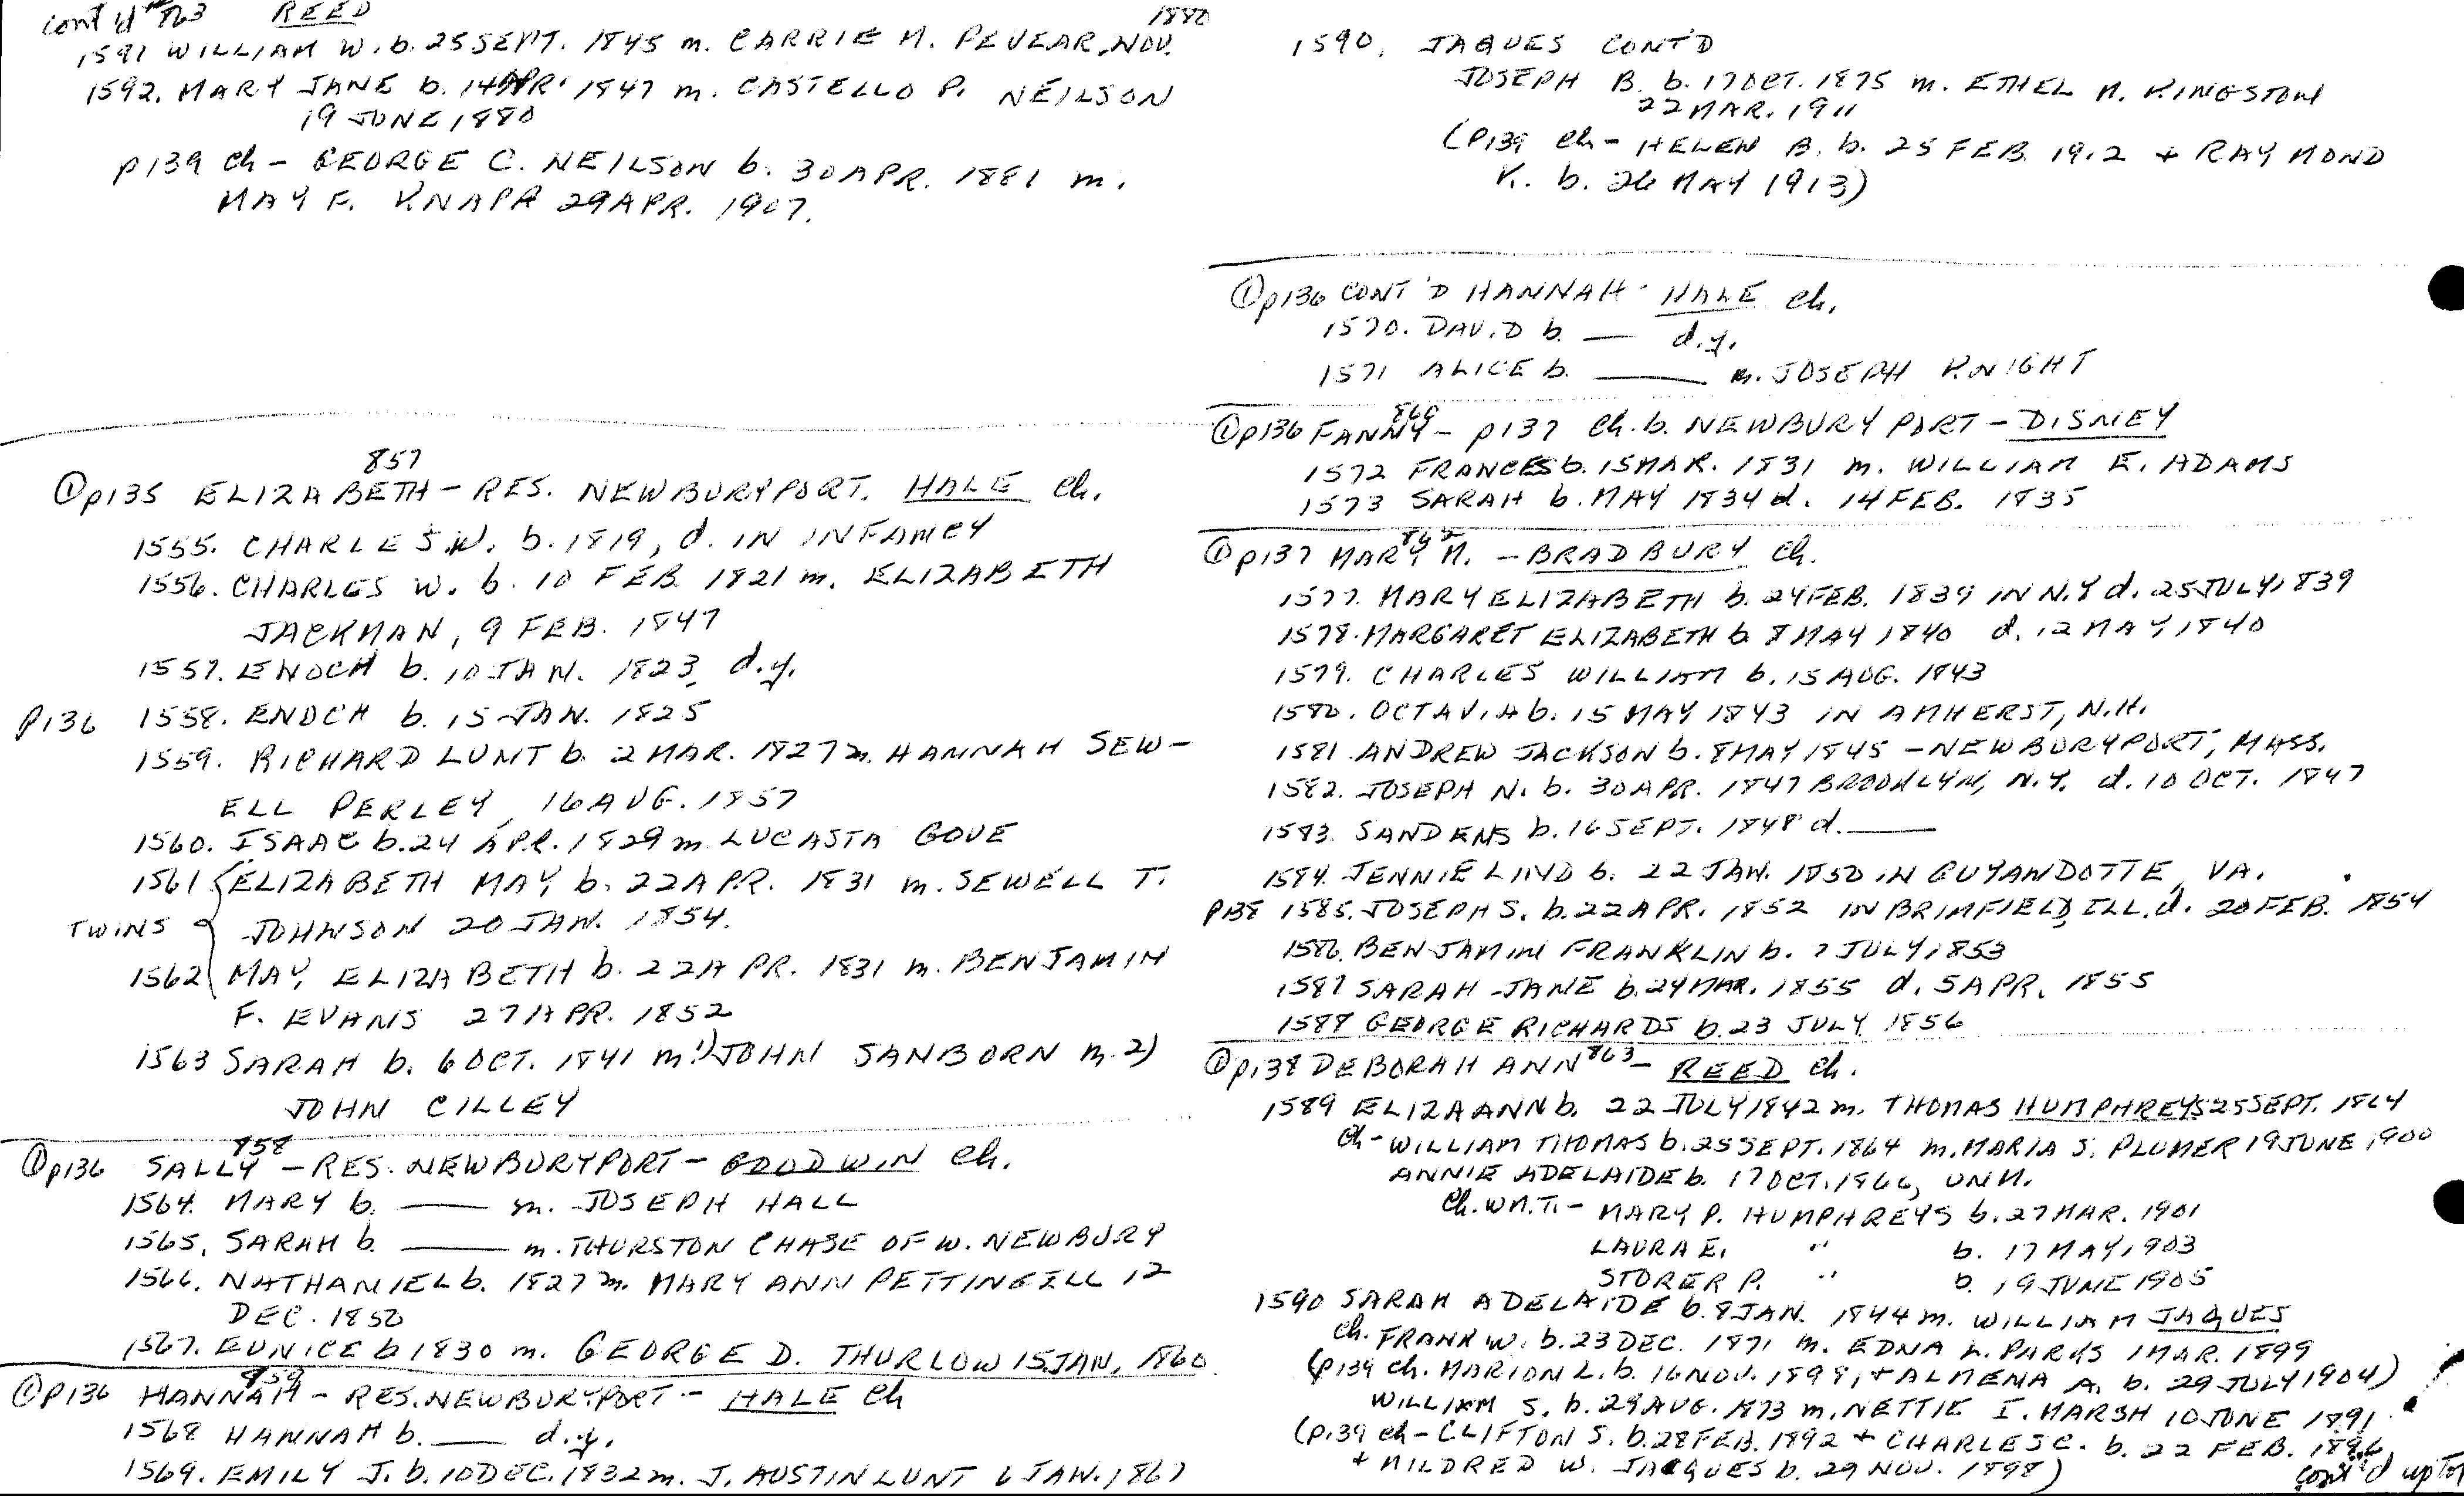 cont'd 863 REED
1880
1591 WILLIAM W. b. 25 SEPT. 1845 m. CARRIE M. PEVEAR, NOV.
1592. MARY JANE b. 14 APR. 1847 m. CASTELLO P. NEILSON
19 JUNE 1880
p139 ch - GEORGE C. NEILSON b. 30 APR. 1881 m.
MAY F. KNAPP 29 APR. 1907.
857
① p135 ELIZABETH - RES. NEWBURYPORT. HALE ch.
1555. CHARLES W. b. 1819, d. IN INFANCY
1556. CHARLES W. b. 10 FEB. 1821 m. ELIZABETH
JACKMAN, 9 FEB. 1847
1557. ENOCH b. 10 JAN. 1823, d.y.
p136 1558. ENOCH b. 15 JAN. 1825
1559. RICHARD LUNT b. 2 MAR. 1827 m. HANNAH SEW-
ELL PERLEY, 16 AUG. 1857
1560. ISAAC b. 24 APR. 1829 m. LUCASTA GOVE
1561 { ELIZABETH MAY, b. 22 APR. 1831 m. SEWELL T.
TWINS JOHNSON 20 JAN. 1854.
1562 MAY, ELIZABETH b. 22 APR. 1831 m. BENJAMIN
F. EVANS 27 APR. 1852
1563 SARAH b. 6 OCT. 1841 m. 1) JOHN SANBORN m. 2)
JOHN CILLEY
858
① p136 SALLY - RES. NEWBURYPORT - GOODWIN ch.
1564. MARY b. — m. JOSEPH HALL
1565. SARAH b. — m. THURSTON CHASE OF W. NEWBURY
1566. NATHANIEL b. 1827 m. MARY ANN PETTINGELL 12
DEC. 1850
1567. EUNICE b 1830 m. GEORGE D. THURLOW 15 JAN. 1860
859
① p136 HANNAH - RES. NEWBURYPORT - HALE ch
1568 HANNAH b. — d.y.
1569. EMILY J. b. 10 DEC. 1832 m. J. AUSTIN LUNT 6 JAN. 1867
1590. JAQUES CONT'D
JOSEPH B. b. 17 OCT. 1875 m. ETHEL M. KINGSTON
22 MAR. 1911
(p139 ch - HELEN B. b. 25 FEB. 1912 + RAYMOND
K. b. 26 MAY 1913)
① p136 CONT'D HANNAH - HALE ch.
1570. DAVID b. — d.y.
1571 ALICE b. — m. JOSEPH KNIGHT
860
① p136 FANNY - p137 ch. b. NEWBURYPORT - DISNEY
1572 FRANCES b. 15 MAR. 1831 m. WILLIAM E. ADAMS
1573 SARAH b. MAY 1834 d. 14 FEB. 1835
862
① p137 MARY M. - BRADBURY ch.
1577. MARY ELIZABETH b. 24 FEB. 1839 IN N.Y d. 25 JULY 1839
1578. MARGARET ELIZABETH b. 8 MAY 1840 d. 12 MAY 1840
1579. CHARLES WILLIAM b. 15 AUG. 1843
1580. OCTAVIA b. 15 MAY 1843 IN AMHERST, N.H.
1581. ANDREW JACKSON b. 8 MAY 1845 - NEWBURYPORT, MASS.
1582. JOSEPH N. b. 30 APR. 1847 BROOKLYN, N.Y. d. 10 OCT. 1847
1583. SANDENS b. 16 SEPT. 1848 d. —
1584. JENNIE LIND b. 22 JAN. 1850 IN GUYANDOTTE, VA.
p138 1585. JOSEPH S. b. 22 APR. 1852 IN BRIMFIELD, ILL. d. 20 FEB. 1854
1586. BENJAMIN FRANKLIN b. 7 JULY 1853
1587 SARAH JANE b. 24 MAR. 1855 d. 5 APR. 1855
1588 GEORGE RICHARDS b. 23 JULY 1856
① p138 DEBORAH ANN 863 - REED ch.
1589 ELIZA ANN b. 22 JULY 1842 m. THOMAS HUMPHREYS 25 SEPT. 1864
ch - WILLIAM THOMAS b. 25 SEPT. 1864 m. MARIA S. PLUMER 19 JUNE 1900
ANNIE ADELAIDE b. 17 OCT. 1866, UNM.
ch. WM. T. - MARY P. HUMPHREYS b. 27 MAR. 1901
LAURA E. " b. 17 MAY 1903
STORER P. " b. 19 JUNE 1905
1590 SARAH ADELAIDE b. 8 JAN. 1844 m. WILLIAM JAQUES
ch. FRANK W. b. 23 DEC. 1871 m. EDNA L. PARKS 1 MAR. 1899
(p139 ch. MARION L. b. 16 NOV. 1899, + ALMENA A. b. 29 JULY 1904)
WILLIAM S. b. 29 AUG. 1873 m. NETTIE I. MARSH 10 JUNE 1891
(p.39 ch - CLIFTON S. b. 28 FEB. 1892 + CHARLES C. b. 22 FEB. 1896
+ MILDRED W. JACQUES b. 29 NOV. 1898)
cont'd up top